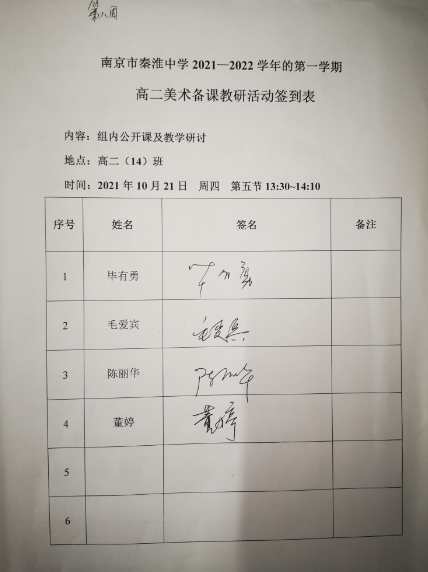 第八周
南京市秦淮中学 2021—2022 学年的第一学期
高二美术备课教研活动签到表
内容：组内公开课及教学研讨
地点：高二（14）班
时间：2021 年 10 月 21 日 周四 第五节 13:30~14:10
序号 姓名 签名 备注
1 毕有勇 毕有勇
2 毛爱宾 毛爱宾
3 陈丽华 陈丽华
4 董婷 董婷
5
6